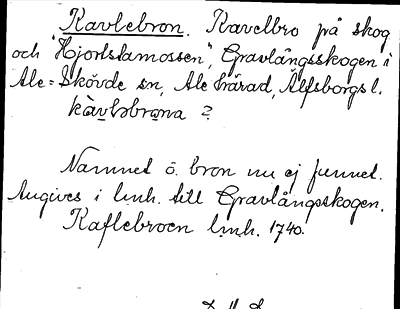 Kavlebron. Kavelbro på skog
och "Hjortstamossen", Gravlångsskogen i
Ale=Skövde sn, Ale härad, Älfsborgs l.
kàvləbrơna ?
Namnet o. bron nu ej funnet.
Angives i lmh. till Gravlångskogen.
Kaflebroen lmh. 1740.